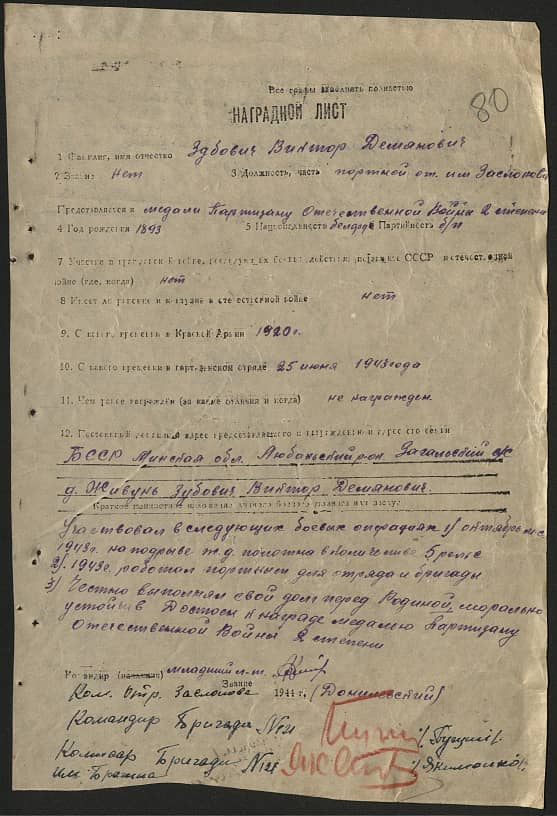 Все графы заполнять полностью
80
НАГРАДНОЙ ЛИСТ
1 Фамилия, имя отчество Зубович Виктор Демянович
2 Звание нет 3 Должность, часть портной от. им Заслонова
Представляется к медали Партизану Отечественной Война 2 степени
4 Год рождения 1893 5 Национальность белорус Партийность б/п
7 Участие в гражданской войне, последующих боевых действиях по защите СССР и отечественной
войне (где, когда) нет
8 Имеет ли ранения и контузии в отечественной войне нет
9. С какого времени в Красной Армии 1920 г.
10. С какого времени в партизанском отряде 25 июня 1943 года
11. Чем ранее награжден (за какие отличия и когда) не награжден
12. Постоянный домашний адрес представляемого к награждению и адрес его семьи
БССР Минская обл. Любаньский р-он. Загальский с/с
д. Живунь Зубович Виктор Демянович.
Краткое конкретное изложение личного боевого подвига или заслуг:
Участвовал в следующих боевых операциях 1/ октябрь м-с
1943г. на подрыве ж.д. полотна в количестве 5 рельс
2) 1943г. работал портным для отряда и бригады
3) Честно выполнял свой долг перед Родиной, морально
устойчив Достоен к награде медалею Партизану
Отечественной Войны 2 степени
Командир (начальник) младший л-т.
Звание
Ком. Отр. Заслонова 1944 г. (Данилевский)
Командир Бригады №121
Комиссар Бригады №121 /Якименко/
им. Брагина